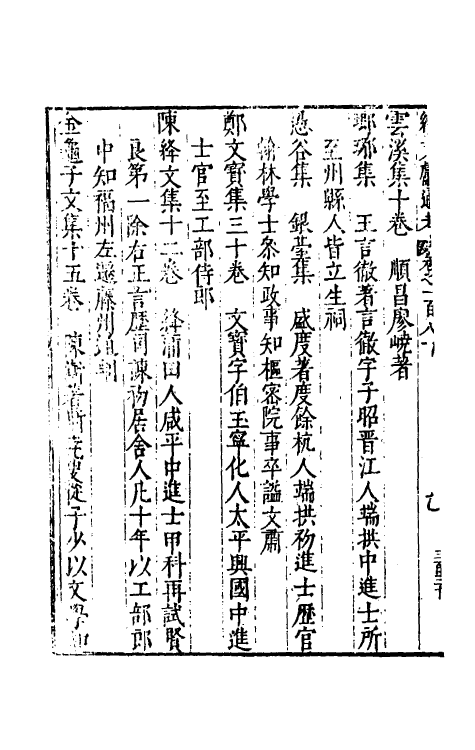 續文獻通考 卷之一百八十
雲溪集十卷 順昌廖嶢著
瑯琊集 王言徹著言徹字子昭晉江人端拱中進士所
至州縣人皆立生祠
愚谷集 銀臺集 盛度著度餘杭人端拱初進士歷官
翰林學士叅知政事知樞密院事卒謚文肅
鄭文寳集三十卷 文寳字伯玉寧化人太平興國中進
士官至工部侍郎
陳絳文集十二卷 絳莆田人咸平中進士甲科再試賢
良第一除右正言歷司諫初居舍人凡十年以工部郎
中知福州左遷藤州通判
金龜子文集十五卷 陳 著 堯叟從子少以文學知